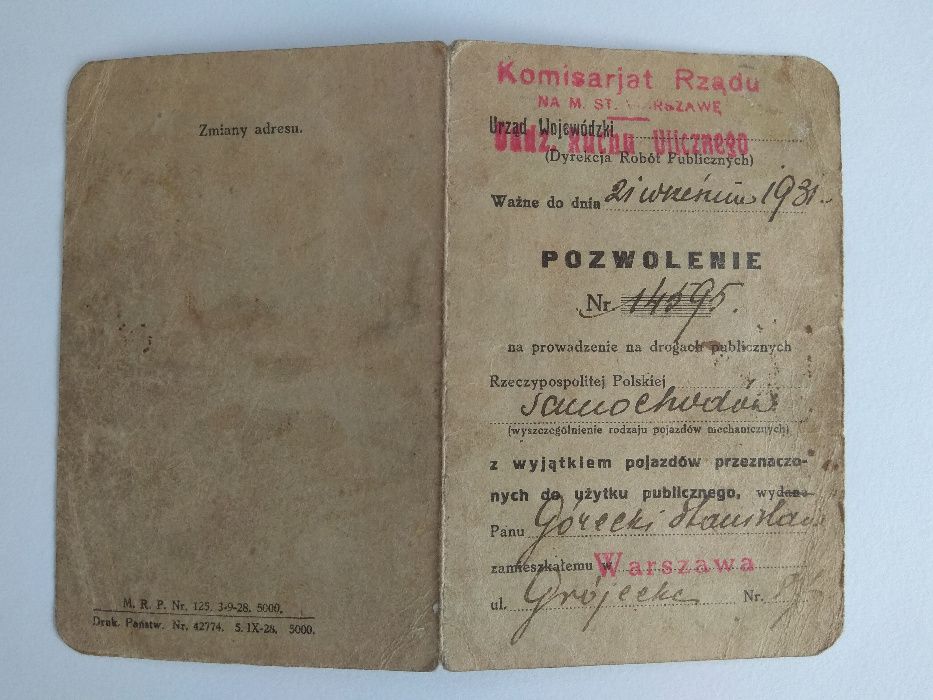 Zmiany adresu.
M. R. P. Nr. 125. 3-9-28. 5000.
Druk. Państw. Nr. 42774. 5. IX-28. 5000.
Komisarjat Rządu
NA M. ST. WARSZAWĘ
Urząd Wojewódzki
Oddz. Ruchu Ulicznego
(Dyrekcja Robót Publicznych)
Ważne do dnia 21 września 1931
POZWOLENIE
Nr. 14595.
na prowadzenie na drogach publicznych
Rzeczypospolitej Polskiej
samochodów
(wyszczególnienie rodzaju pojazdów mechanicznych)
z wyjątkiem pojazdów przeznaczo-
nych do użytku publicznego, wydane
Panu Górecki Stanisław
zamieszkałemu w Warszawa
ul. Grójecka Nr.